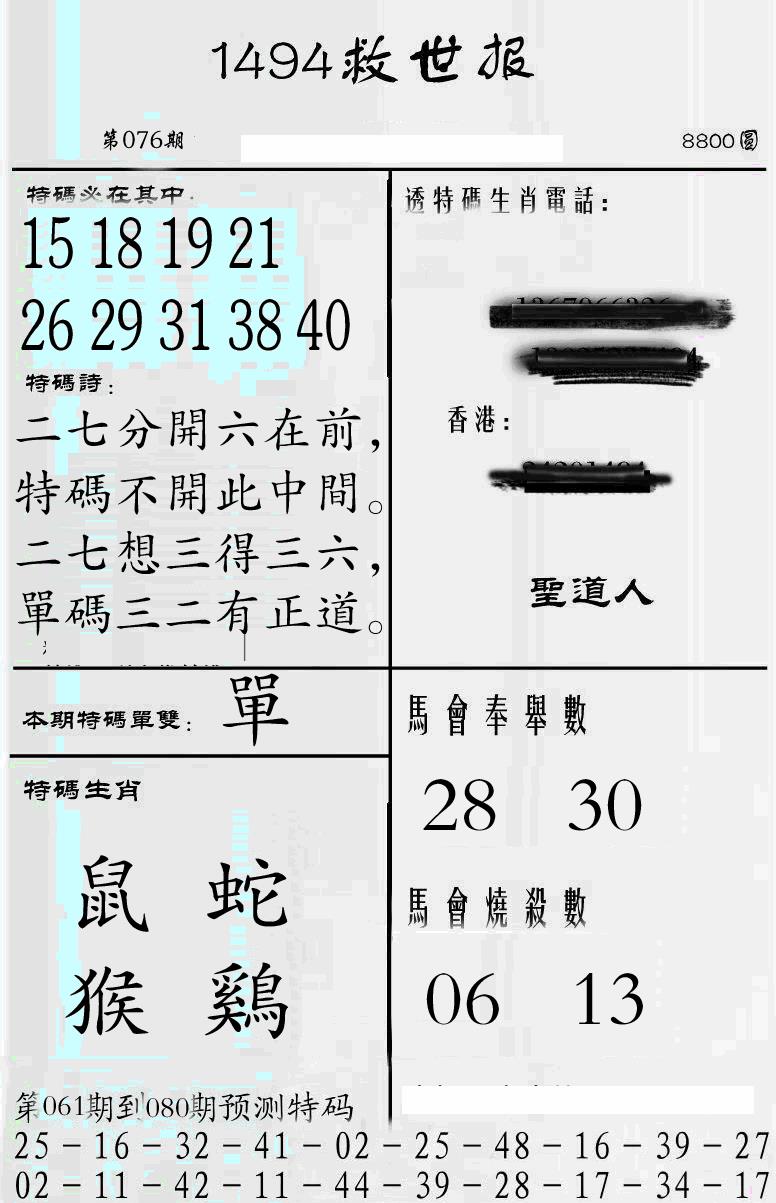 1494救世报
第076期
8800圓
特碼必在其中:
15 18 19 21
26 29 31 38 40
特碼詩:
二七分開六在前,
特碼不開此中間。
二七想三得三六,
單碼三二有正道。
本期特碼單雙: 單
特碼生肖
鼠 蛇
猴 鷄
透特碼生肖電話:
香港:
聖道人
馬會奉舉數
28 30
馬會燒殺數
06 13
第061期到080期预测特码
25-16-32-41-02-25-48-16-39-27
02-11-42-11-44-39-28-17-34-17